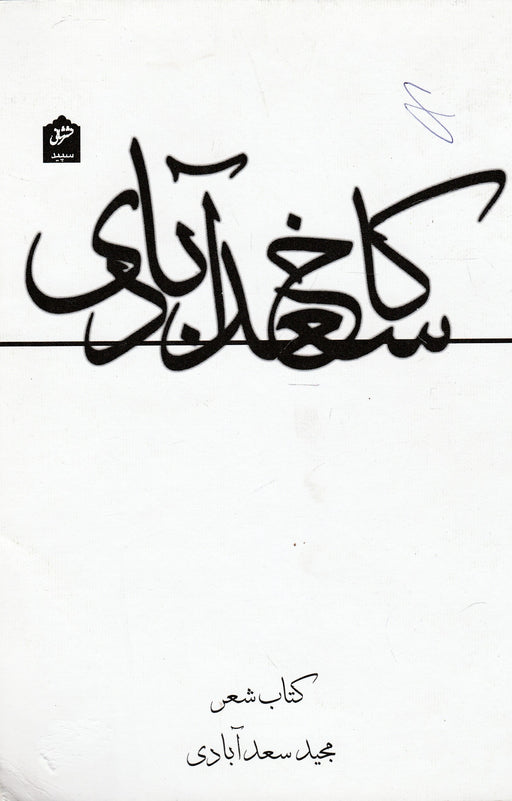 سپید
کاخ سعدآبادی
کتاب شعر
مجید سعدآبادی